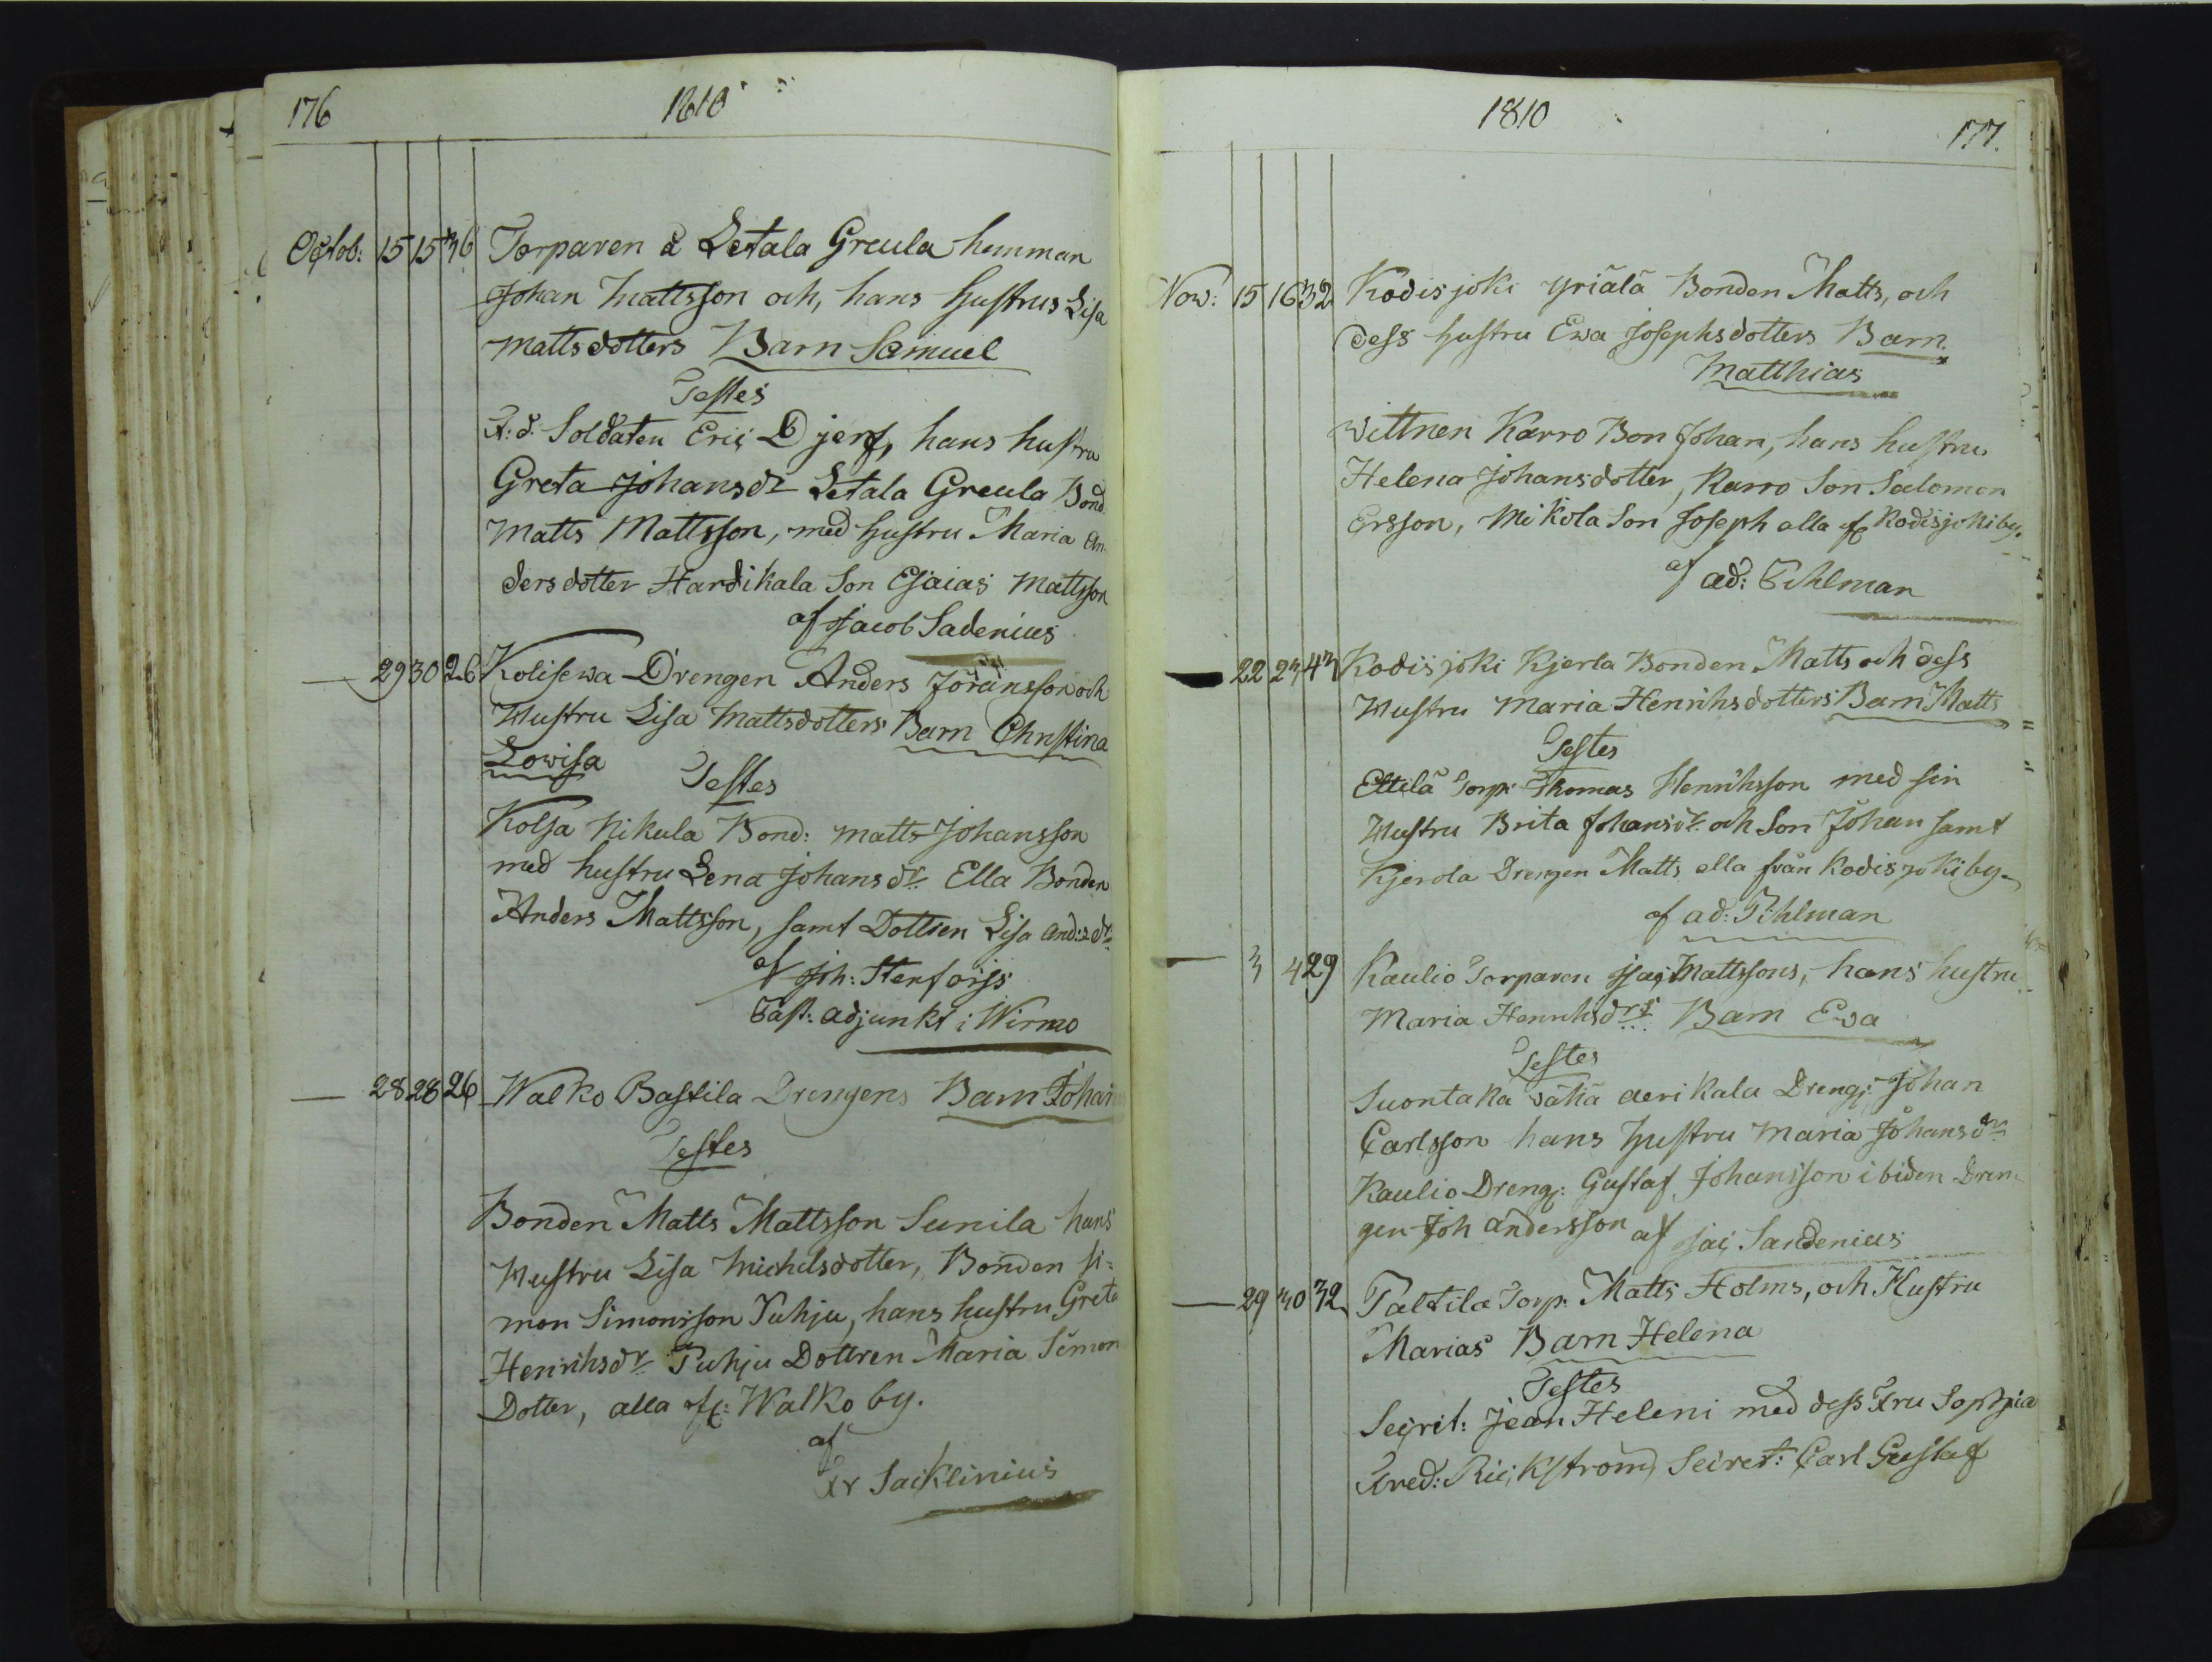 176
1810
Octob: 15 15 36 Torparen å Letala Greula hemman
Johan Mattsson och, hans hustrus Lisa
Mattsdotters Barn Samuel
Testes
A:d. Soldaten Eric Djerf, hans hustru
Greta Johansdr Letala Greula Bond
Matts Mattsson, med hustru Maria An
dersdotter Hardikala Son Esaias Mattsson
af Jacob Sadenius
— 29 30 26 Kolisewa Drengen Anders Joransson och
Hustru Lisa Mattsdotters Barn Christina
Lowisa Testes
Kolsa Nikula Bond: Matts Johansson
med hustru Lena Johansdr. Ella Bonden
Anders Mattsson, samt Dottren Lisa And:sdr
af Joh: Stenforss
Past: adjunkt i Wirmo
— 28 28 26 Walko Bastila Drengens Barn Johan
Testes
Bonden Matts Mattsson Sunila hans
Hustru Lisa Michelsdotter, Bonden Si=
mon Simonsson Juhju, hans hustru Greta
Henrihsdr Puhju Dottren Maria Simon
Dotter, alla af: Walko by.
af
Sacklinius
1810
177.
Now: 15 16 32 Kodisjoki Yriälä Bonden Matts, och
dess hustru Ewa Josephsdotters Barn
Matthias
Wittnen Karro Bon Johan, hans hustru
Helena Johansdotter, Karro Son Salomon
Ersson, Mikola Son Joseph alla af Kodisjoki by.
af ad: Pihlman
— 22 23 43 Kodisjoki Kjerla Bonden Matts och dess
Hustru Maria Henrihsdotters Barn Matts
Testes
Ettilä Torp: Thomas Henrihsson med sin
Hustru Brita Johansdr. och Son Johan samt
Kjerola Drengen Matts alla från Kodisjoki by.
af ad: Pihlman
— 3 4 29 Kaulio Torparen Isac Mattssons, hans hustru
Maria Henrihsdrs Barn Ewa
Testes
Suontaka wähä aerikala Dreng: Johan
Carlsson hans Hustru Maria Johansdr
Kaulio Dreng: Gustaf Johansson ibiden Dren
gen Joh Andersson af Jac Sardenius
— 29 30 32 Paltila Torp: Matts Holms, och Hustru
Marias Barn Helena
Testes
Secrit: Jean Heleni med dess Fru Sophia
Fred: Rickström, Secret: Carl Gustaf